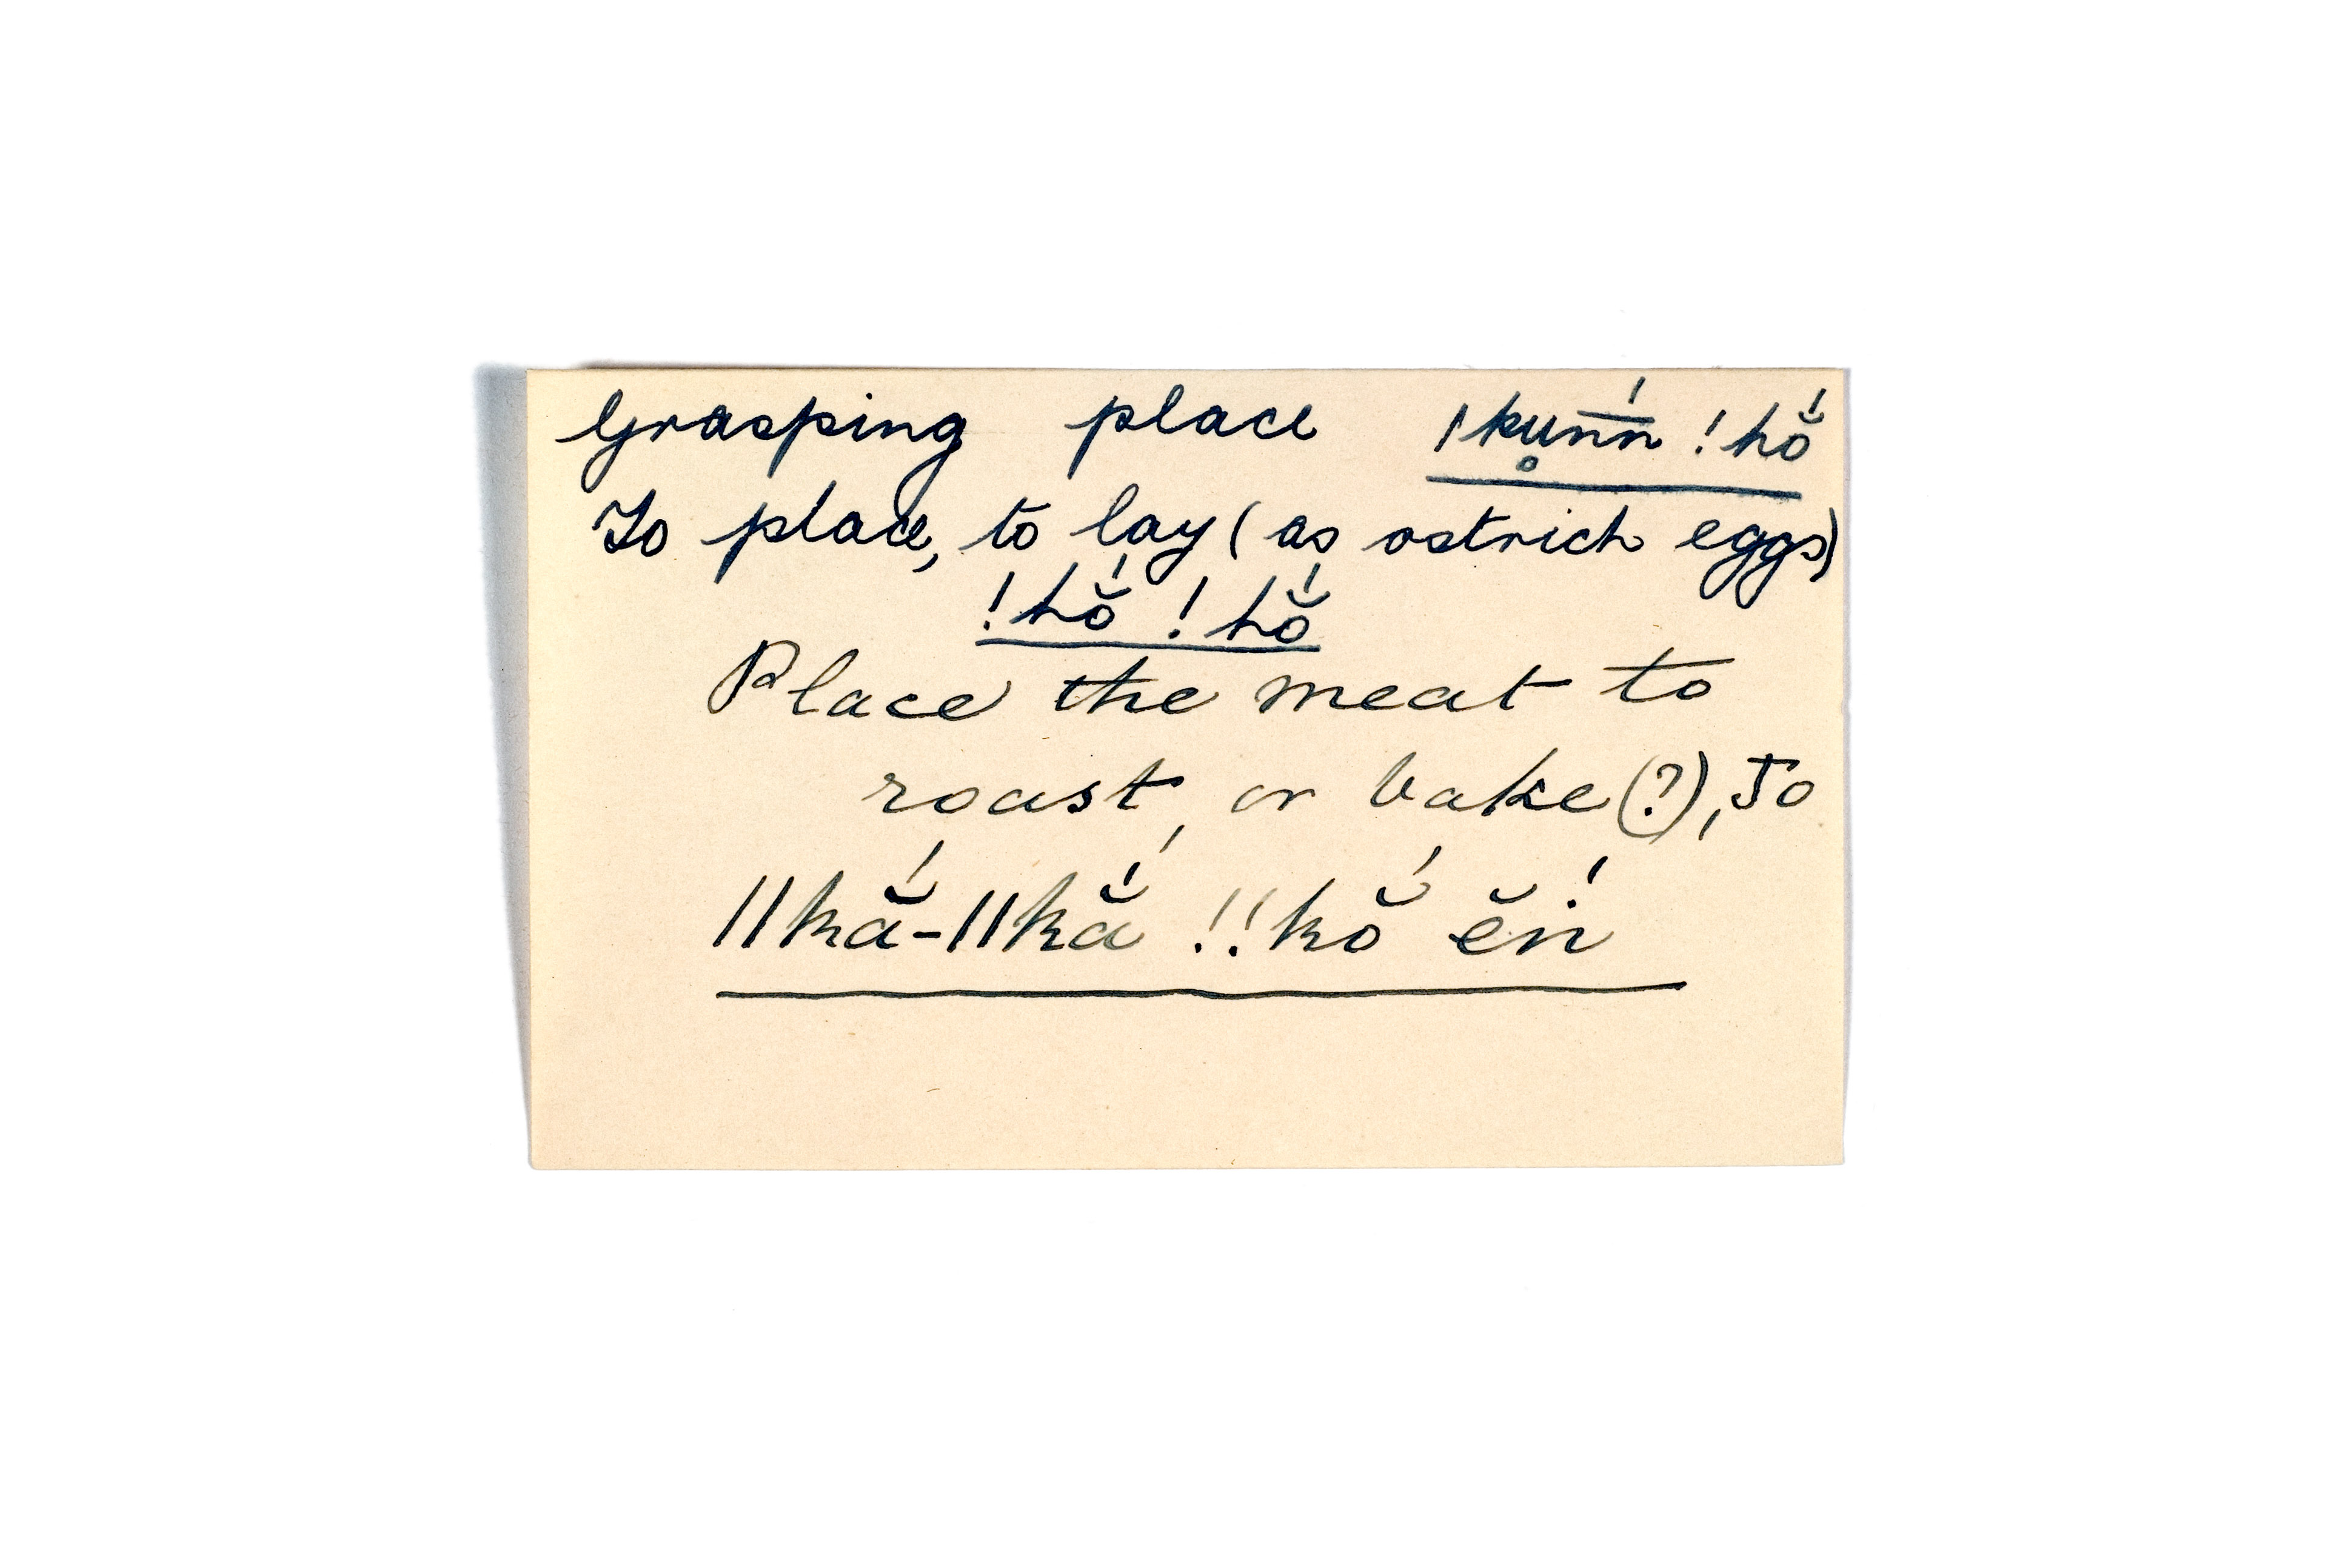 Grasping place ǀku̥n̄́n !hŏ́
To place, to lay (as ostrich eggs)
!hŏ́ !hŏ́
Place the meat to
roast, or bake (?), To
ǁkắ-ǁkắ !!kŏ́ ĕń